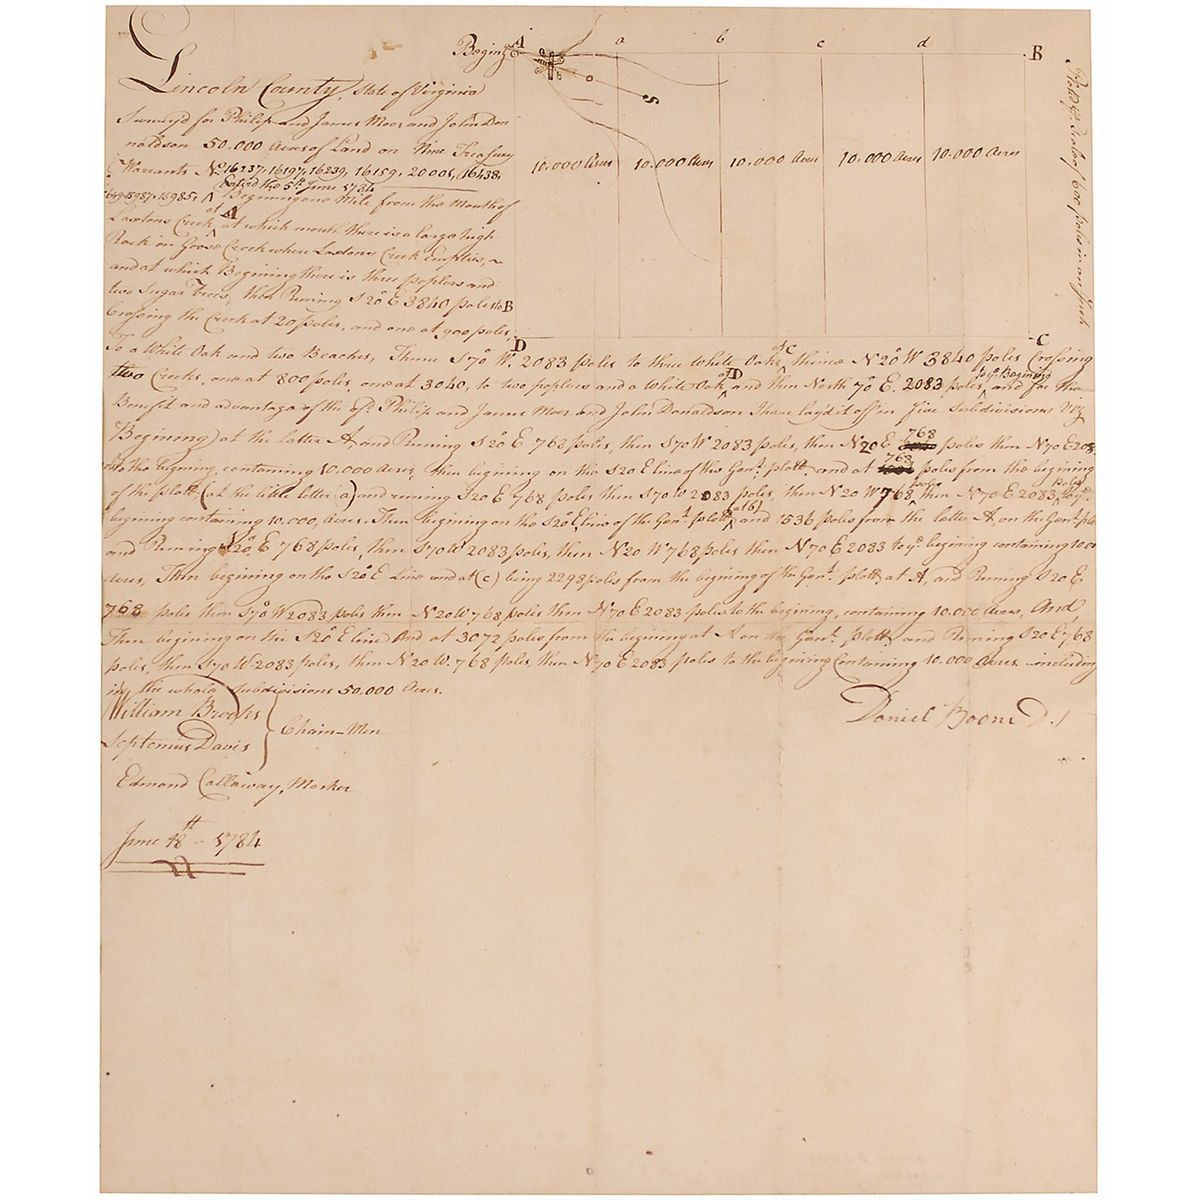 Begin.g A a b c d B
S
10.000 Acres 10.000 Acres 10.000 Acres 10.000 Acres 10.000 Acres
D C
Lincoln County, State of Virginia
Survey'd for Philip and James Moor and John Don
naldson 50.000 Acres of Land on Nine Treasury
Warrants No. 16237, 16197, 16239, 16159, 20001, 16438,
15987, 15985, Enterd the 5th June 1784
Begining one Mile from the Mouth of
Laxtons Creek at A at which mouth there is a large high
Rock in Goose Creek where Laxtons Creek empties,
and at which Begining there is three poplers and
two Sugar Trees, then Runing S 20° E 3840 poles to B
Crossing the Creek at 20 poles, and one at 900 poles,
To a White Oak and two Beaches, Thence S 70° W. 2083 poles to three White Oaks at C, thence N 20° W 3840 poles Crossing
two Creeks, one at 800 poles, one at 3040, to two poplers and a White Oak at D and then North 70° E. 2083 poles, Begining and for the
Benefit and advantage of the sd. Philip and James Moor and John Donaldson I have layd it off in five Subdivisions Viz
Begining) at the latter A and Runing S 20° E 768 poles, then S 70 W 2083 poles, then N 20 E 768 poles then N 70 E 2083
to the begining, containing 10.000 Acres, then begining on the S 20 E line of the Genl. plott, and at 768 poles from the begining
of the plott (at the little letter a) and runing S 20 E 768 poles then S 70 W 2083 poles, then N 20 W 768 poles, then N 70 E 2083 poles
begining containing 10.000, Acres. Then begining on the S 20° E line of the Genl. plott (at b) and 1536 poles from the letter A, on the Genl. plo
and Runing S 20°, E 768 poles, then S 70 W 2083 poles, then N 20 W 768 poles then N 70 E 2083 to ye. begining containing 10.00
Acres, Then begining on the S 20° E Line and at (c) being 2298 poles from the begining of the Genl. plott, at A, and Runing S 20 E.
768 poles then S 70° W 2083 poles then N 20 W 768 poles then N 70 E 2083 poles to the begining, containing 10.000 Acres, And
Then begining on the S 20° E line And at 3072 poles from the begining at A on the Genl. plott and Runing S 20 E 768
poles, then S 70 W 2083 poles, then N 20 W. 768 poles, then N 70 E 2083 poles to the begining Containing 10.000 Acres including
in the whole subdivisions 50.000 Acres.
William Brooks
Septemus Davis
Chain-Men
Daniel Boone D.S
Edmond Callaway, Marker
June 18th 1784
by a Scale of 600 poles in an Inch